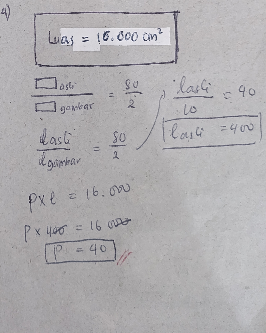 4)
Luas = 16.000 cm²
□ asli / □ gambar = 80/2
l asli / l gambar = 80/2
l asli / 10 = 40
l asli = 400
p x l = 16.000
p x 400 = 16 000
p = 40